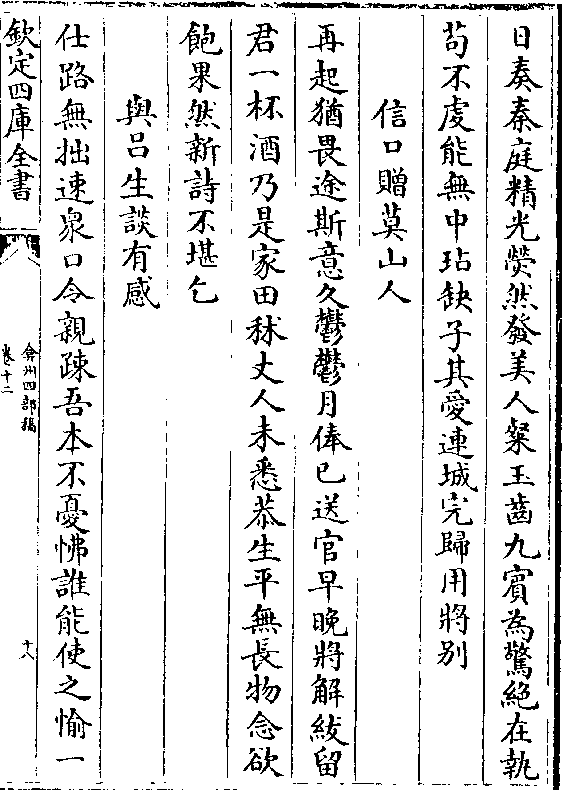 日奏秦庭精光熒然發美人粲玉齒九賓為驚絕在執
苟不虔能無中玷缺子其愛連城完歸用將别
信口贈莫山人
再起猶畏途斯意久鬱鬱月俸已送官早晚將解紱留
君一杯酒乃是家田秫丈人未悉恭生平無長物念欲
飽果然新詩不堪乞
與吕生談有感
仕路無拙速衆口令親疎吾本不憂怫誰能使之愉一
欽定四庫全書
弇州四部稿
卷十二
十八